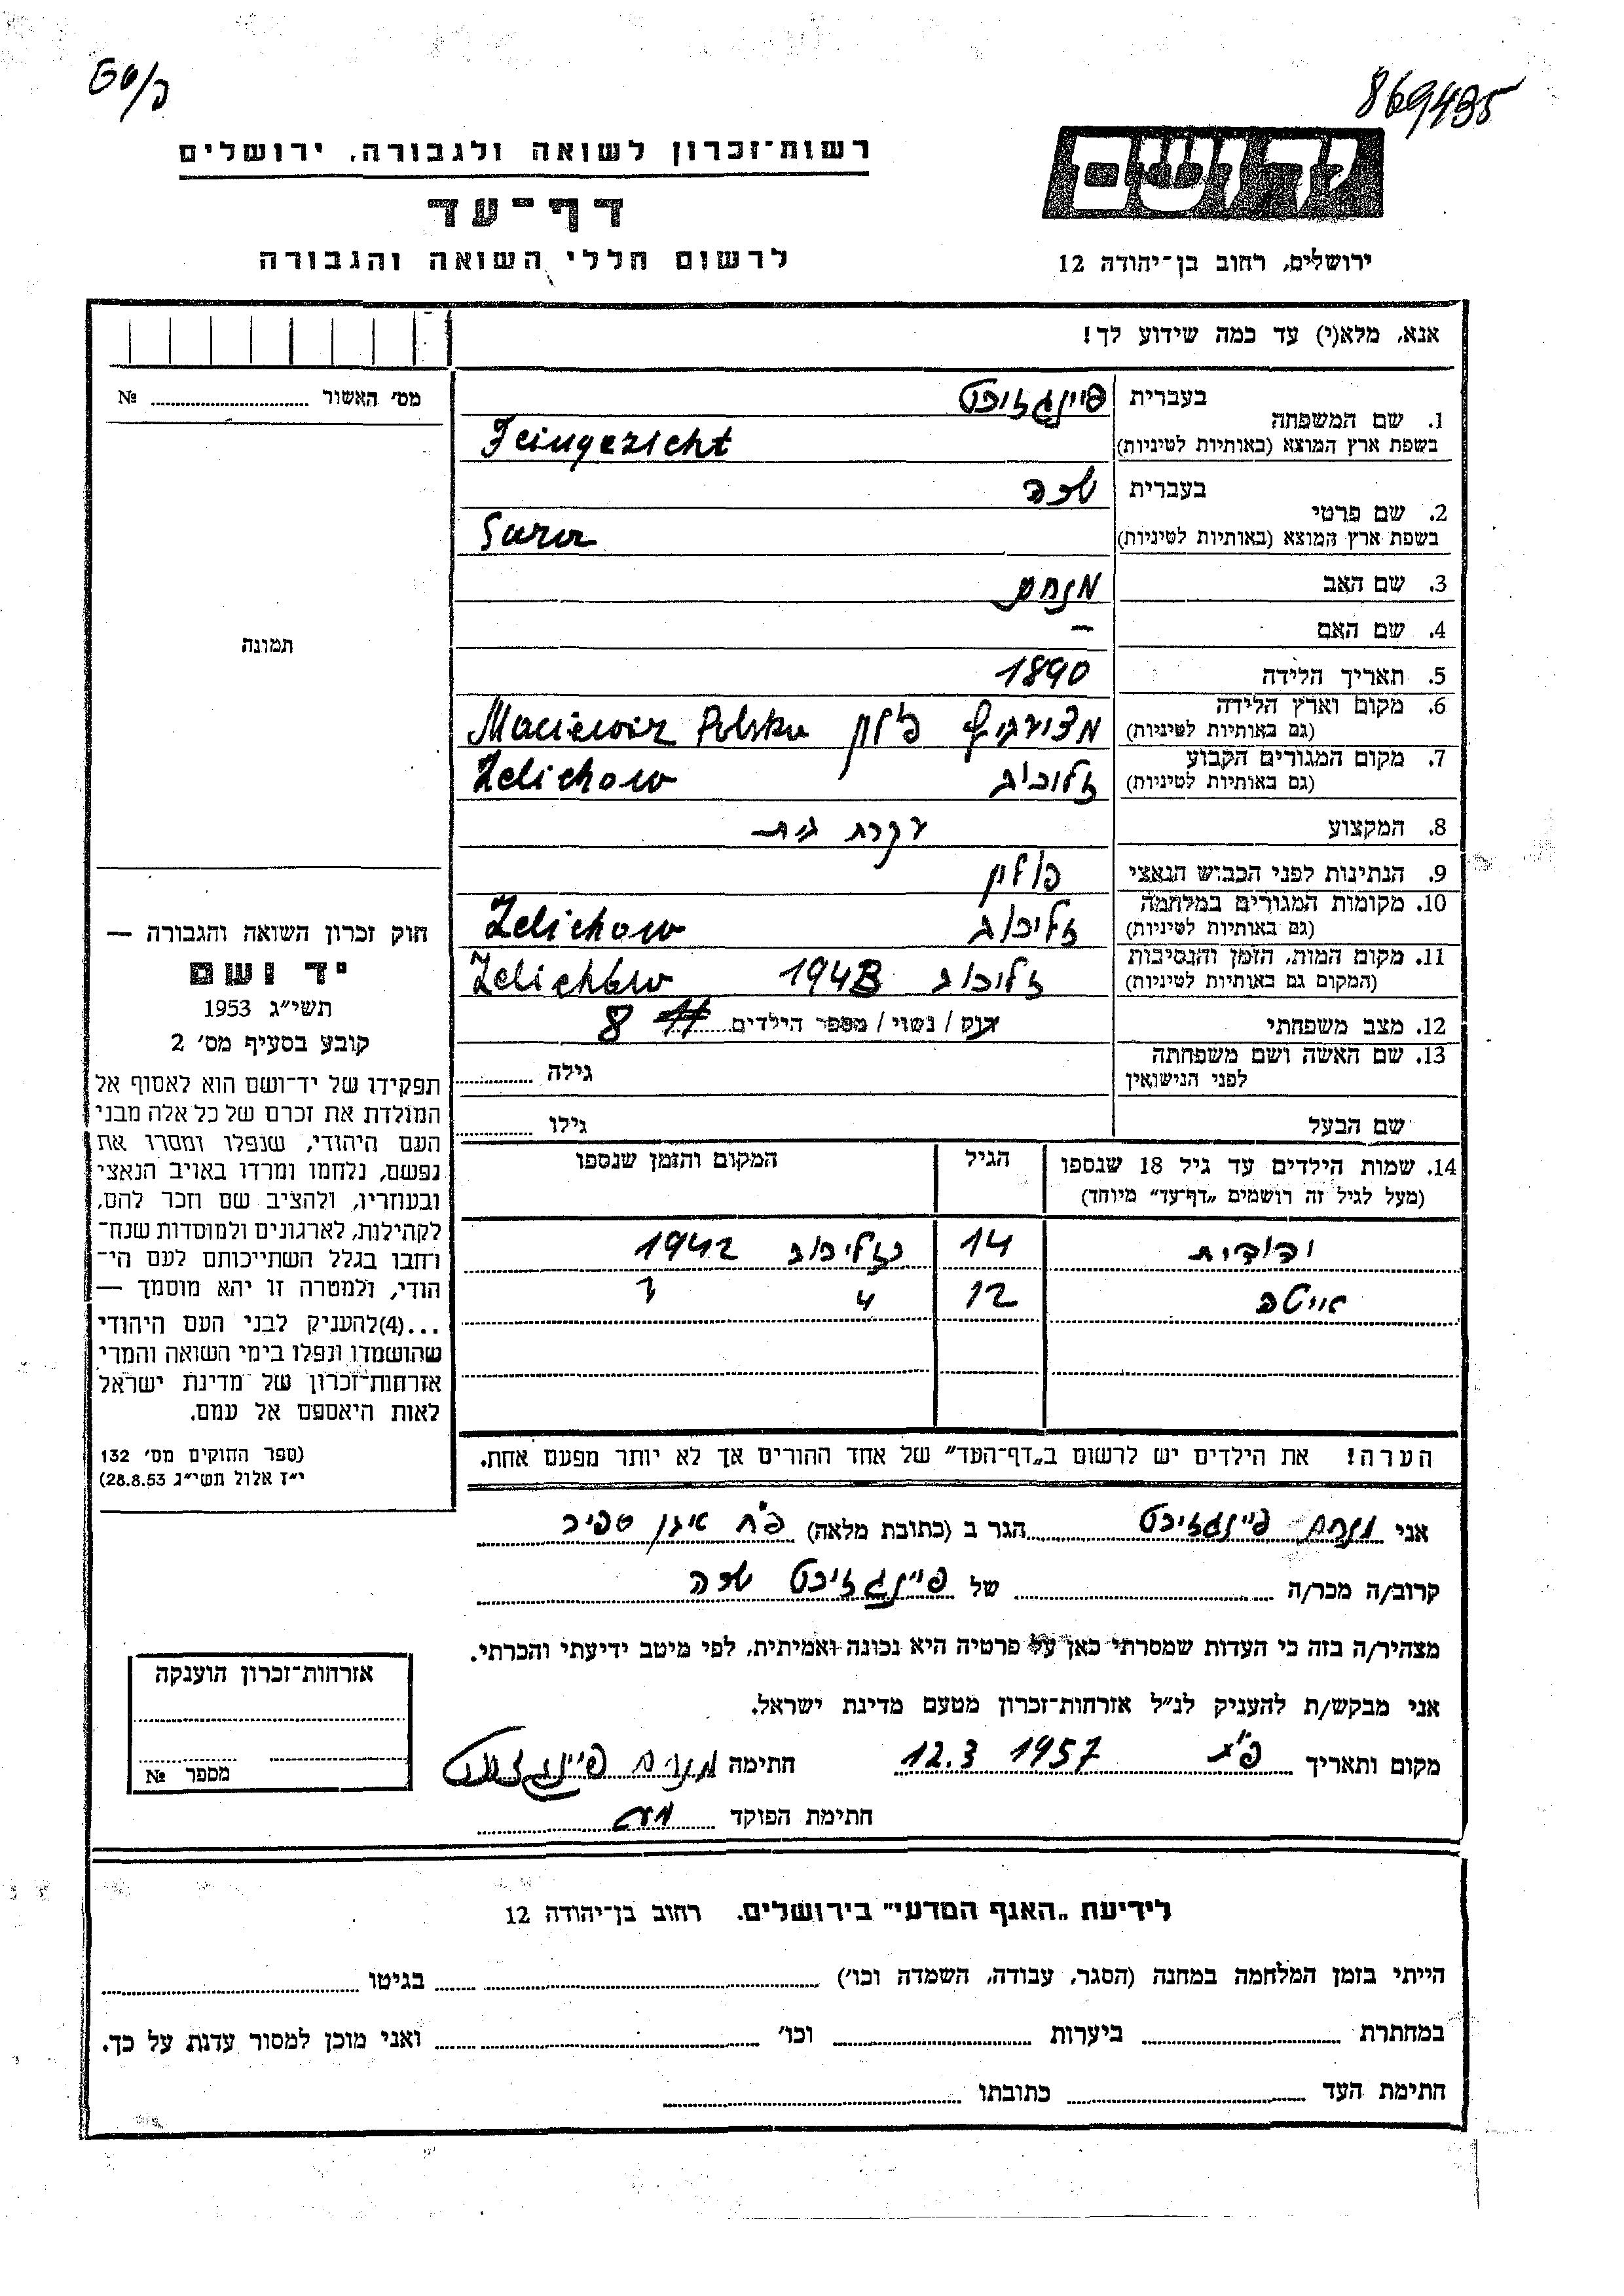 869435
רשות־זכרון לשואה ולגבורה, ירושלים
דף־עד
לרשום חללי השואה והגבורה
יד ושם
ירושלים, רחוב בן־יהודה 12
אנא, מלא(י) עד כמה שידוע לך!
מס׳ האשור № 
1. שם המשפחה
בעברית
פיינגזיכט
בשפת ארץ המוצא (באותיות לטיניות)
Feingezicht
2. שם פרטי
בעברית
שרה
בשפת ארץ המוצא (באותיות לטיניות)
Sura
3. שם האב
מנחם
4. שם האם
—
5. תאריך הלידה
1890
6. מקום וארץ הלידה
(גם באותיות לטיניות)
פולין Polska
7. מקום המגורים הקבוע
(גם באותיות לטיניות)
Zelichow
8. המקצוע
עקרת בית
9. הנתינות לפני הכבוש הנאצי
פולין
10. מקומות המגורים במלחמה
(גם באותיות לטיניות)
זליכוב Zelichow
11. מקום המות, הזמן והנסיבות
(המקום גם באותיות לטיניות)
1943 Zelichow
12. מצב משפחתי
רוק / נשוי / מספר הילדים 8
13. שם האשה ושם משפחתה
לפני הנישואין
גילה
שם הבעל
גילו
14. שמות הילדים עד גיל 18 שנספו
(מעל לגיל זה רושמים „דף־עד״ מיוחד)
הגיל
המקום והזמן שנספו
יהודית 14 בזליכוב 1942
איטה 12 " "
הערה! את הילדים יש לרשום ב„דף־העד״ של אחד ההורים אך לא יותר מפעם אחת.
תמונה
חוק זכרון השואה והגבורה —
יד ושם
תשי״ג 1953
קובע בסעיף מס׳ 2
תפקידו של יד־ושם הוא לאסוף אל
המולדת את זכרם של כל אלה מבני
העם היהודי, שנפלו ומסרו את
נפשם, נלחמו ומרדו באויב הנאצי
ובעוזריו, ולהציב שם וזכר להם,
לקהילות, לארגונים ולמוסדות שנח־
רחבו בגלל השתייכותם לעם הי־
הודי, ולמטרה זו יהא מוסמך —
...(4)להעניק לבני העם היהודי
שהושמדו ונפלו בימי השואה והמרי
אזרחות־זכרון של מדינת ישראל
לאות היאספם אל עמם.
(ספר החוקים מס׳ 132
י״ז אלול תשי״ג 28.8.53)
אני מנחם פיינגזיכט הגר ב (כתובת מלאה)
קרוב/ה מכר/ה של פיינגזיכט שרה
מצהיר/ה בזה כי העדות שמסרתי כאן על פרטיה היא נכונה ואמיתית, לפי מיטב ידיעתי והכרתי.
אני מבקש/ת להעניק לנ״ל אזרחות־זכרון מטעם מדינת ישראל.
מקום ותאריך 12.3 1957 חתימה מנחם פיינגזיכט
חתימת הפוקד
אזרחות־זכרון הוענקה
מספר №
לידיעת „האגף המדעי״ בירושלים, רחוב בן־יהודה 12
הייתי בזמן המלחמה במחנה (הסגר, עבודה, השמדה וכו׳) בגיטו
במחתרת ביערות וכו׳ ואני מוכן למסור עדות על כך.
חתימת העד כתובתו